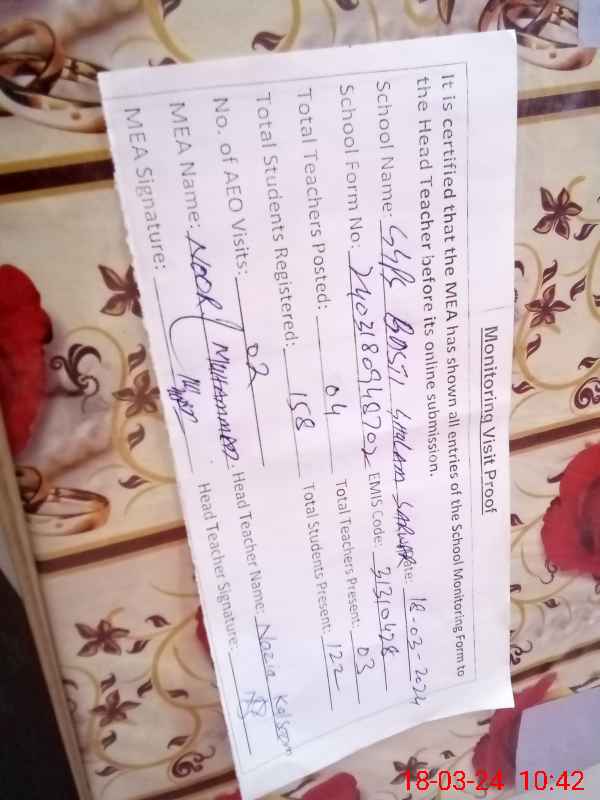 Monitoring Visit Proof
It is certified that the MEA has shown all entries of the School Monitoring Form to
the Head Teacher before its online submission.
School Name: BASTI GHULAM SARWAR Date: 18-03-2024
School Form No: 2403180948702 EMIS Code: 31310428
Total Teachers Posted: 04 Total Teachers Present: 03
Total Students Registered: 158 Total Students Present: 122
No. of AEO Visits: 02
MEA Name: NOOR MUHAMMAD Head Teacher Name: Nazia Kalsoom
MEA Signature: Head Teacher Signature:
18-03-24 10:42